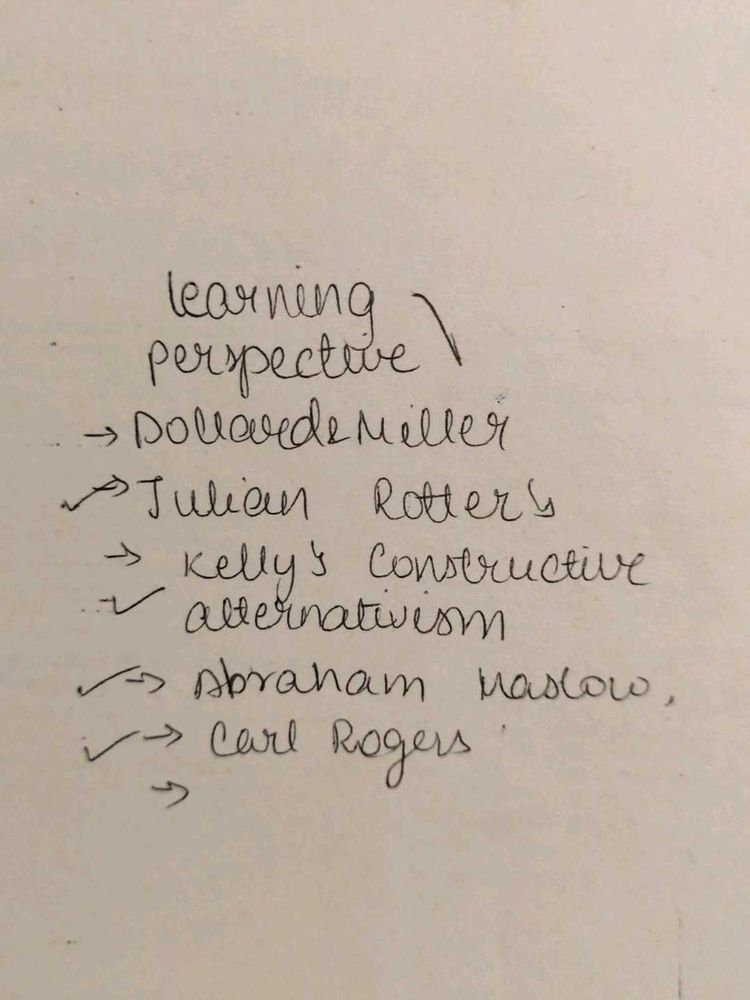 learning
perspective
→ Dollard & Miller
✓→ Julian Rotter's
→ Kelly's Constructive
✓ alternativism
✓→ Abraham Maslow.
✓→ Carl Rogers
→